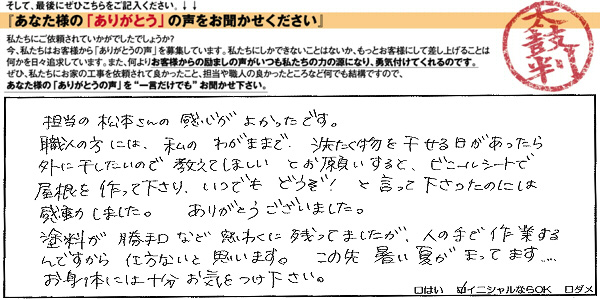 そして、最後にぜひこちらをご記入ください。↓↓↓
『あなた様の「ありがとう」の声をお聞かせください』
私たちにご依頼されていかがでしたでしょうか?
今、私たちはお客様から「ありがとうの声」を募集しています。私たちにしかできないことはないか、もっとお客様にして差し上げることは
何かを日々追求しています。また、何よりお客様からの励ましの声がいつも私たちの力の源になり、勇気付けてくれるのです。
ぜひ、私たちにお家の工事を依頼されて良かったこと、担当や職人の良かったところなど何でも結構ですので、
あなた様の「ありがとうの声」を“一言だけでも”お聞かせ下さい。
太鼓判
担当の松本さんの感心がよかったです。
職人の方には、私のわがままで、洗たく物を干せる日があったら
外に干したいので教えてほしいとお願いすると、ビニールシートで
屋根を作って下さり、いつでもどうぞ!と言って下さったのには
感動しました。ありがとうございました。
塗料が勝手口など思わくに残ってましたが、人の手で作業する
んですから仕方ないと思います。この先暑い夏がまってます....
お身体には十分お気をつけ下さい。
口はい ☑イニシャルならOK 口ダメ